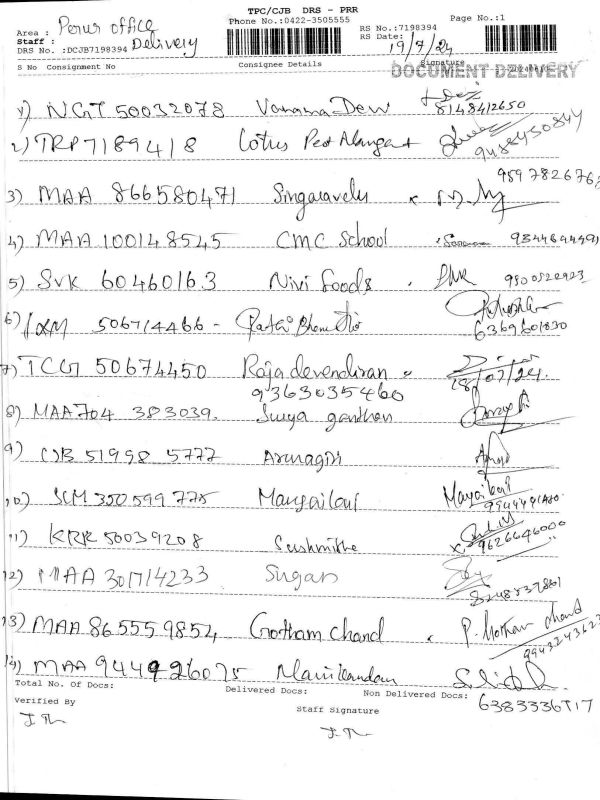 TPC/CJB DRS - PRR
Phone No.:0422-3505555
Page No.:1
Area : Perur office
RS No.:7198394
Staff : Delivery
RS Date: 19/7/24
DRS No. :DCJB7198394
S No Consignment No Consignee Details Signature
DOCUMENT DELIVERY
1) NGT 50032078 Vanama Devi 8148412650
2) TRP 7189418 Lotus 9488430844
3) MAA 866580471 Singaravelu
4) MAA 100148545 CMC School
5) SVK 60460163 Nivi foods 9500522923
6) 506714466 - 6369601830
7) TCG 50674450 Raja devendiran 18/07/24
9363035460
8) MAA704 383039. Surya ganthan
9) CJB 51998 5777 Arunagiri
10) 350 599 775
11) KRK 50039208 Sushmitha 9626646000
12) MAA 301714233 Sugan
13) MAA 865559854 Gotham chand P. Gotham chand
14) MAA 9449926075 Manikandan
Total No. Of Docs: Delivered Docs: Non Delivered Docs:
Verified By
Staff Signature